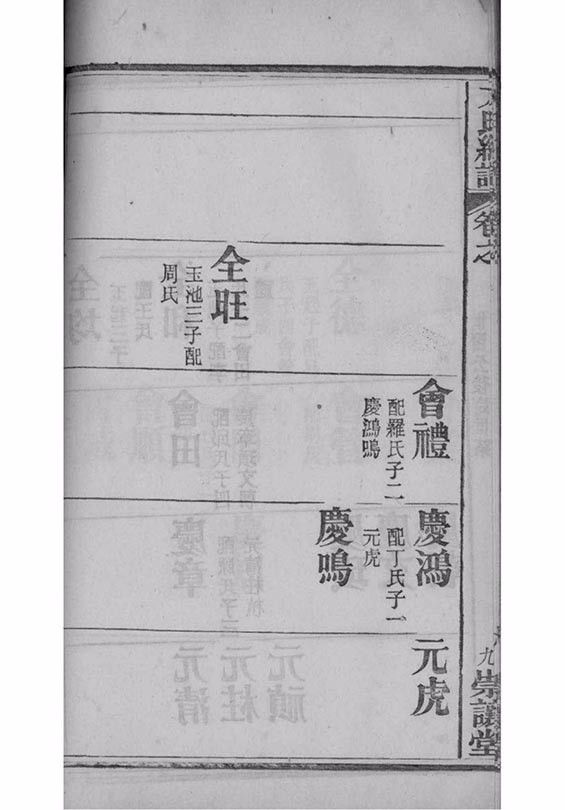 氏
譜
卷之
九
崇讓堂
會禮
配羅氏子二
慶鴻鳴
慶鴻
配丁氏子一
元虎
元虎
慶鳴
全旺
玉池三子配
周氏